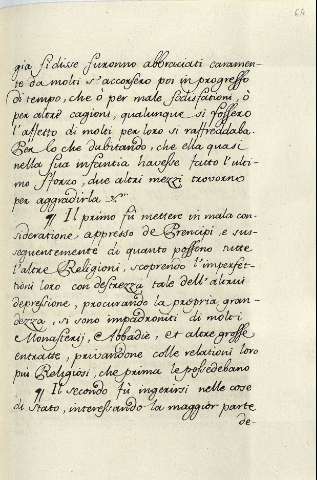 64
gia si disse furonno abbraciati caramen-
te da molti s'accorsero poi in progresso
di tempo, che ò per male sodisfationi, ò
per altre cagioni, qualunque si fossero
l'affetto di molti per loro si raffreddaba.
Per lo che dubitando, che ella quasi
nella sua infantia havesse fatto l'ulti-
mo sforzo, due altri mezzi trovorno
per aggradirla
¶ Il primo fù mettere in mala con-
sideratione appresso de Prencipi, e sus-
sequentemente di quanto possono tutte
l'altre Religioni, scoprendo l'imperfet-
tioni loro con destrezza tale dell'altrui
depressione, procurando la propria gran-
dezza, si sono impadroniti di molti
Monasterij, Abbadie, et altre grosse
entratte, privandone colle relationi loro
piú Religiosi, che prima le possedebano
¶ Il secondo fù ingerirsi nelle cose
di Stato, interessando la maggior parte
de-